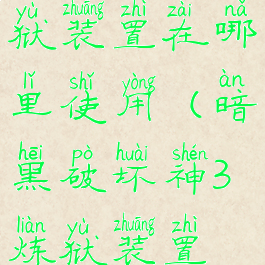 yù zhuāng zhì zài nǎ
狱装置在哪
lǐ shǐ yòng àn
里使用(暗
hēi pò huài shén
黑破坏神3
liàn yù zhuāng zhì
炼狱装置